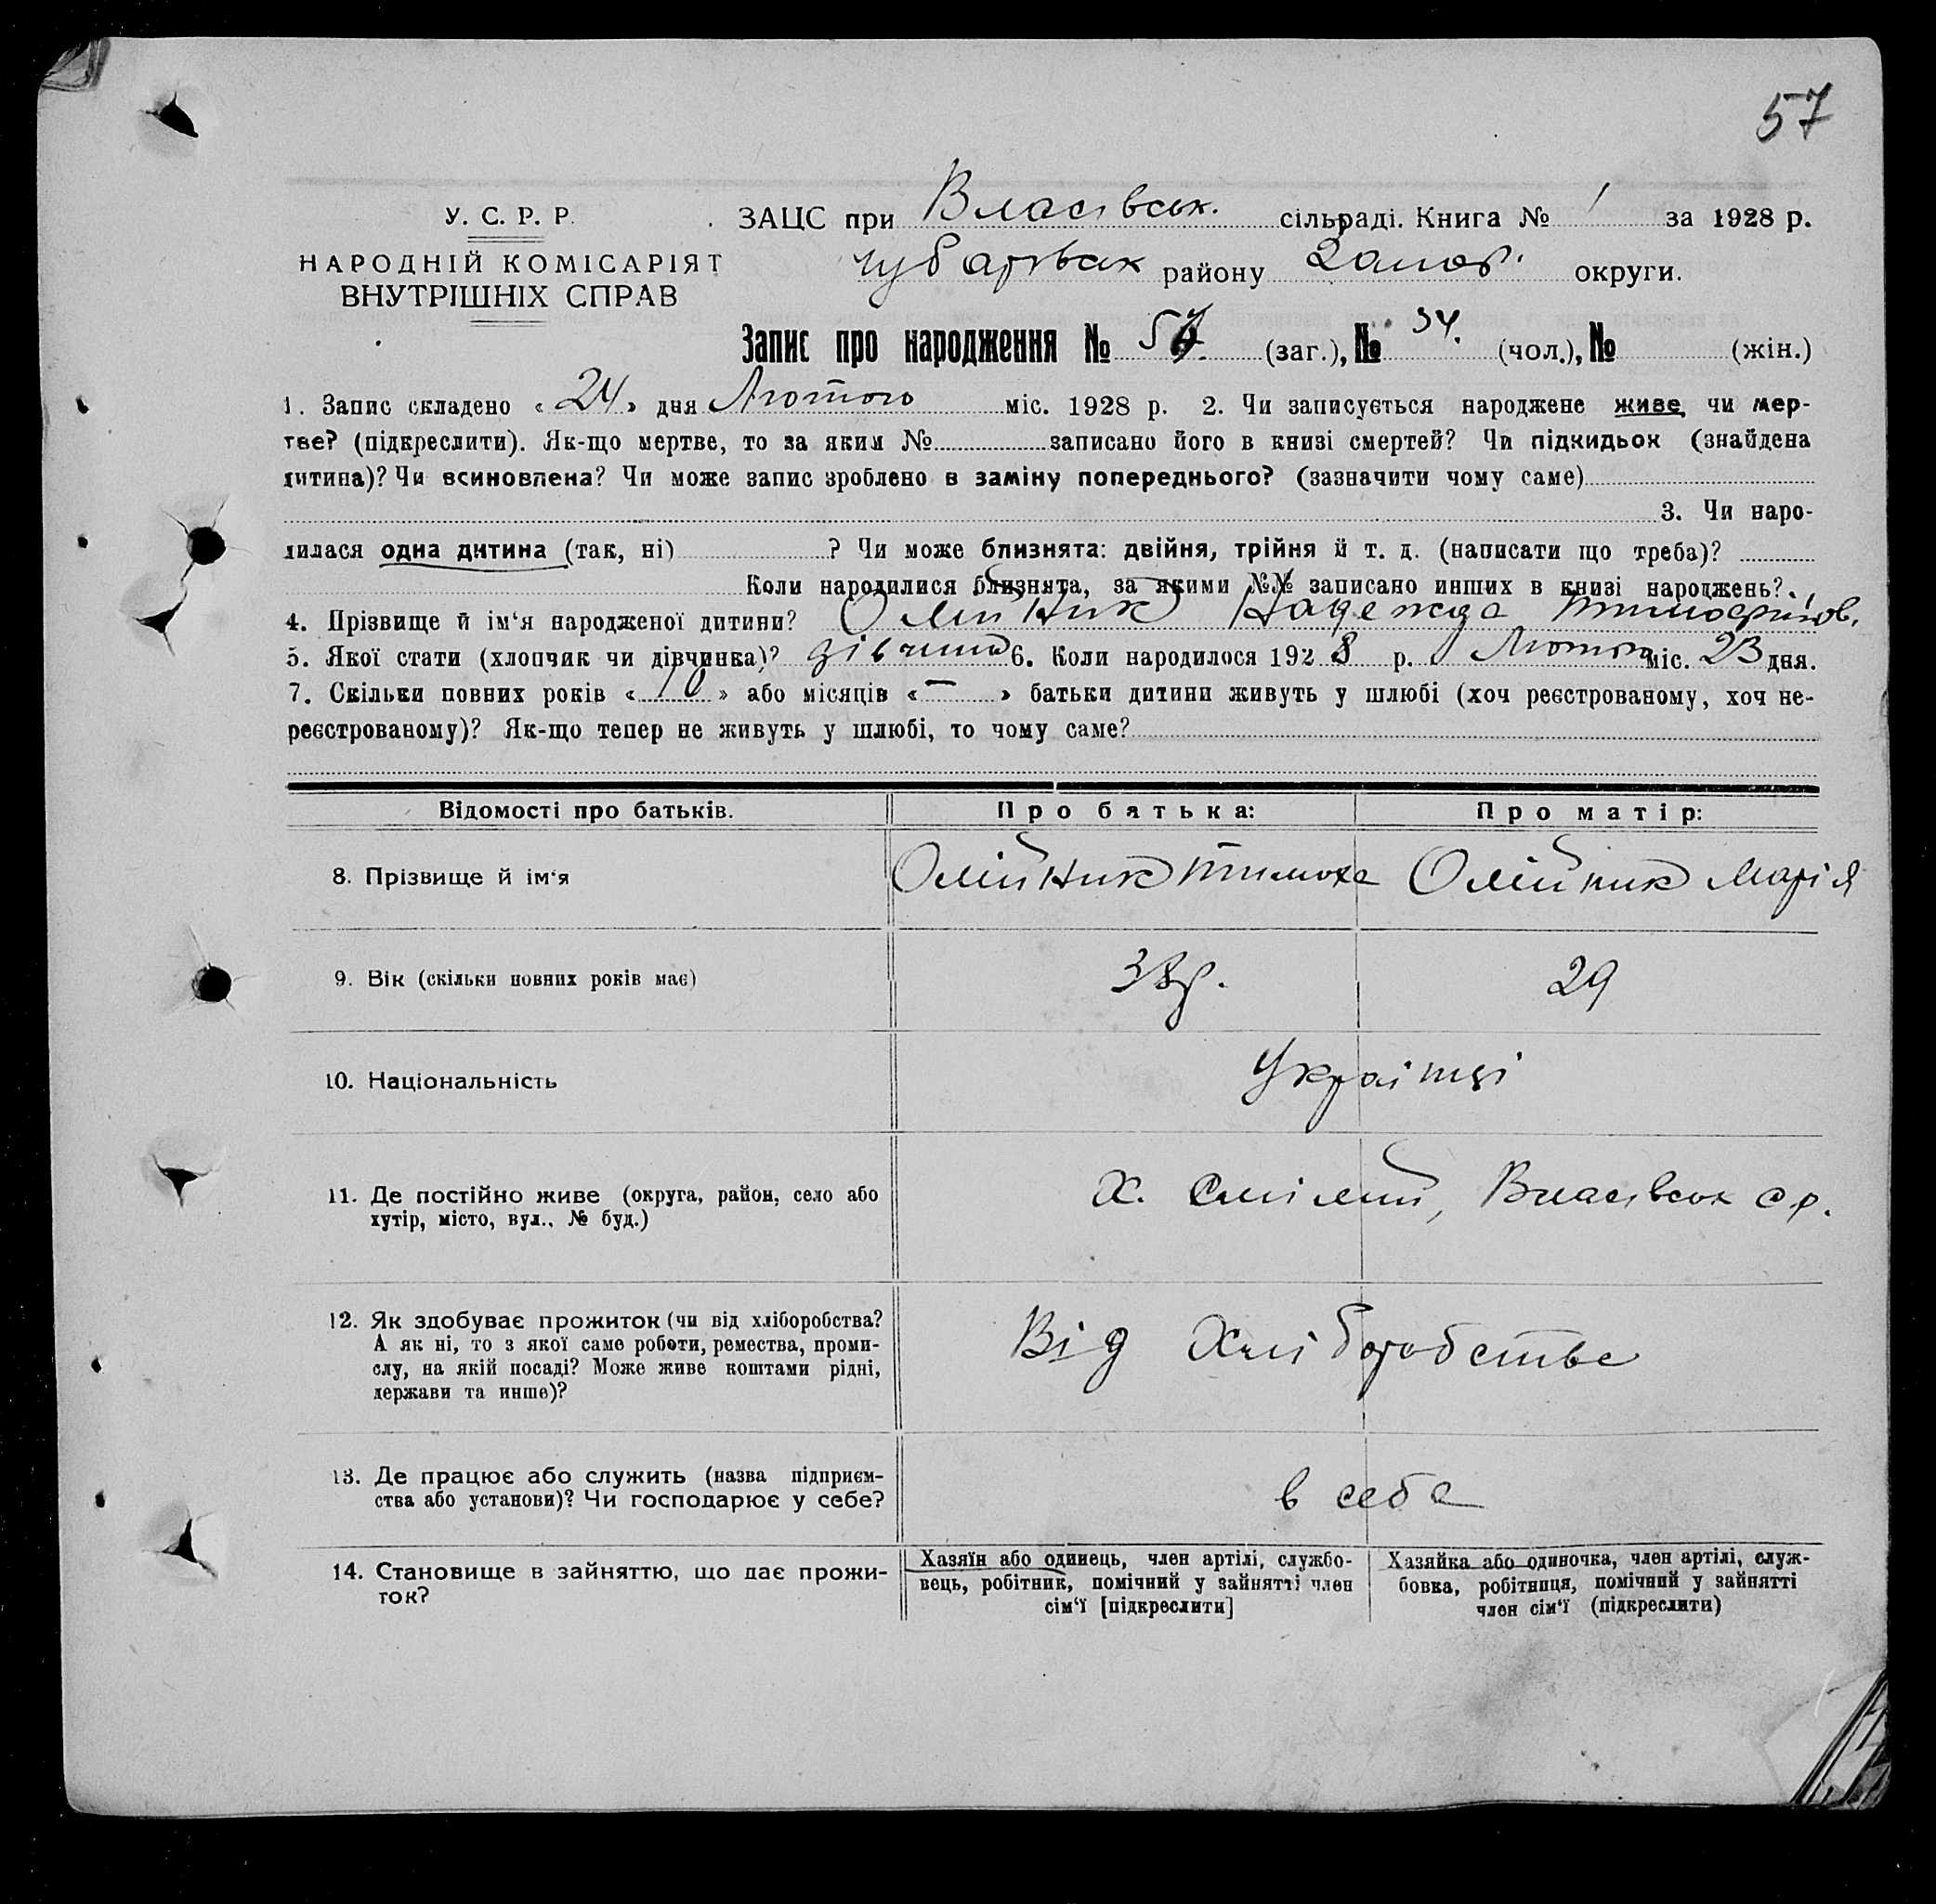 57
У. С. Р. Р.
НАРОДНІЙ КОМІСАРІЯТ
ВНУТРІШНІХ СПРАВ
ЗАЦС при Власівськ. сільраді. Книга № 1 за 1928 р.
Чубарівськ району Запор. округи.
Запис про народження № 57 (заг.), № 34. (чол.), № (жін.)
1. Запис складено «24» дня Лютого міс. 1928 р. 2. Чи записується народжене живе чи мер-
тве? (підкреслити). Як-що мертве, то за яким № записано його в книзі смертей? Чи підкидьок (знайдена
дитина)? Чи всиновлена? Чи може запис зроблено в заміну попереднього? (зазначити чому саме)
3. Чи наро-
дилася одна дитина (так, ні) ? Чи може близнята: двійня, трійня й т. д. (написати що треба)?
Коли народилися близнята, за якими №№ записано инших в книзі народжень?
4. Прізвище й ім‘я народженої дитини? Олійник Надежда Тимофіїов.
5. Якої стати (хлопчик чи дівчинка)? дівчина 6. Коли народилося 1928 р. Лютого міс. 23 дня.
7. Скільки повних років «10» або місяців «—» батьки дитини живуть у шлюбі (хоч реєстрованому, хоч не-
реєстрованому)? Як-що тепер не живуть у шлюбі, то чому саме?
Відомості про батьків. Про батька: Про матір:
8. Прізвище й ім‘я Олійник Тимоха Олійник Марія
9. Вік (скільки повних років має) 38р. 29
10. Національність Українці
11. Де постійно живе (округа, район, село або
хутір, місто, вул., № буд.)
Х. Смілий, Власівськ с.р.
12. Як здобуває прожиток (чи від хліборобства?
А як ні, то з якої саме роботи, ремества, проми-
слу, на якій посаді? Може живе коштами рідні,
держави та инше)?
Від Хліборобства
13. Де працює або служить (назва підприєм-
ства або установи)? Чи господарює у себе?
в себе
14. Становище в зайняттю, що дає прожи-
ток?
Хазяїн або одинець, член артілі, службо-
вець, робітник, помічний у зайнятті член
сім‘ї [підкреслити]
Хазяйка або одиночка, член артілі, служ-
бовка, робітниця, помічний у зайнятті
член сім‘ї (підкреслити)